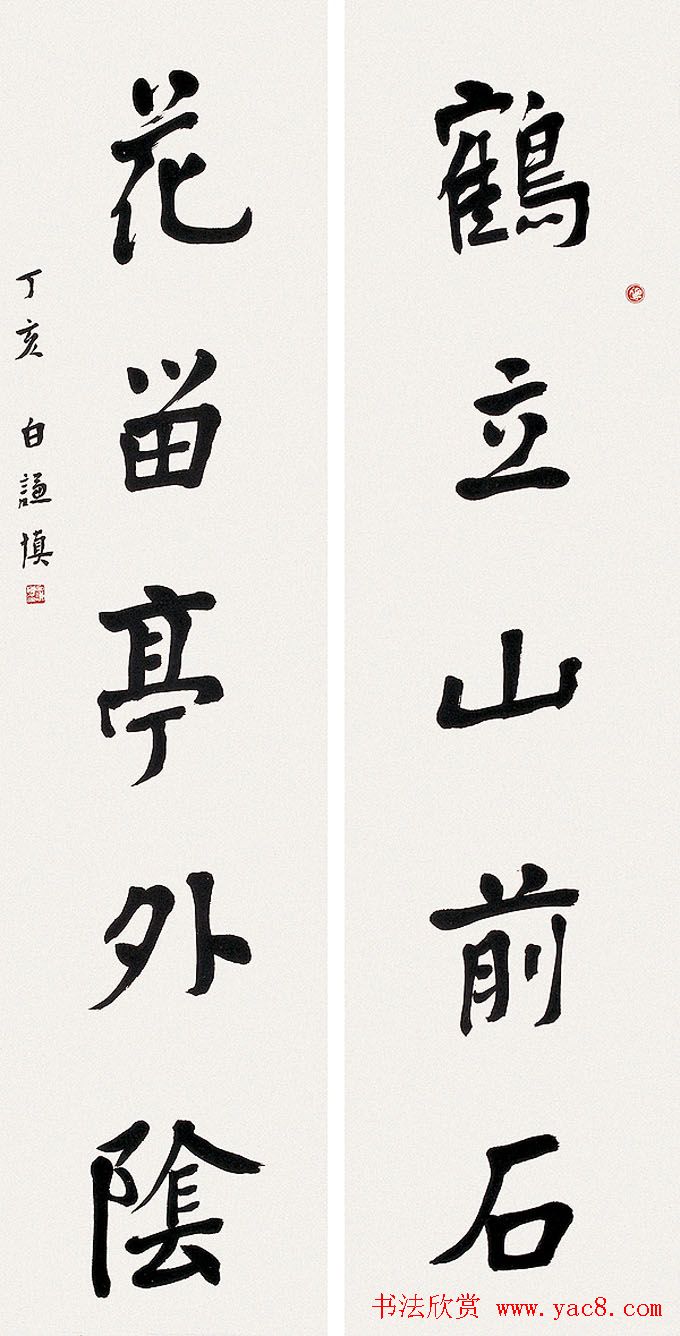 鶴立山前石
花留亭外陰
丁亥 白謙慎
书法欣赏 www.yac8.com